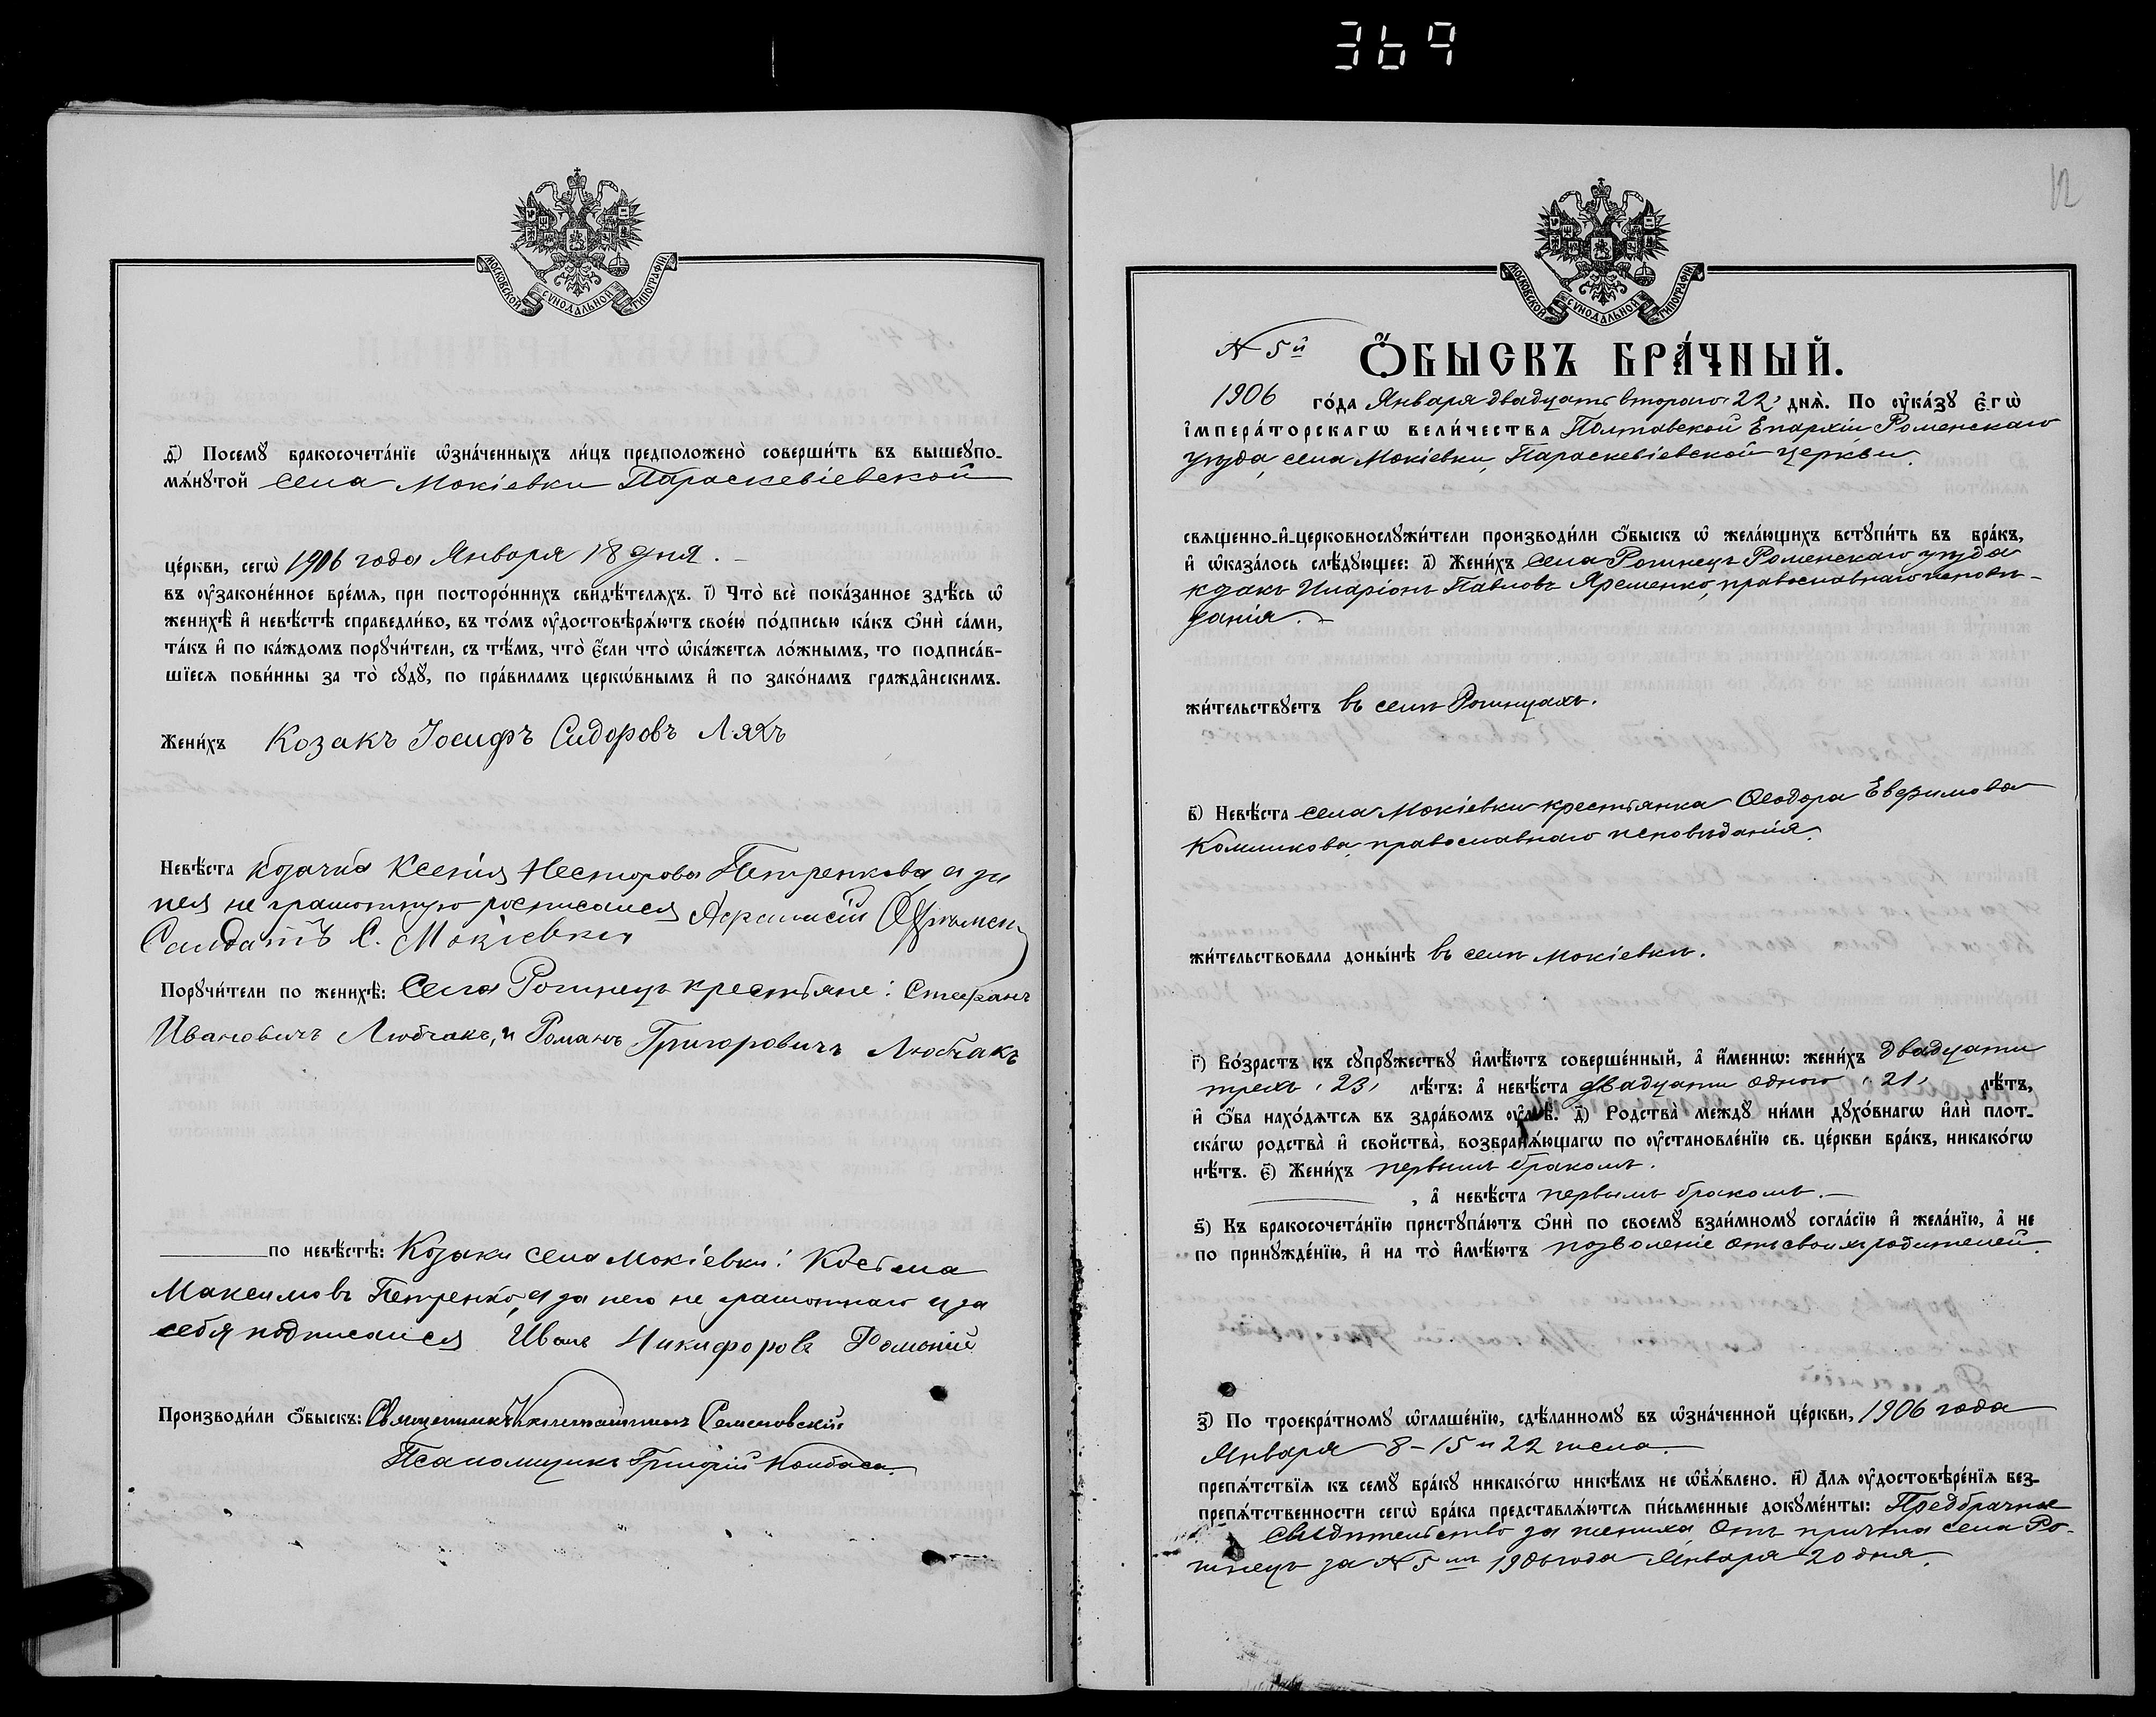 369
МОСКОВСКОЙ СѴНОДАЛЬНОЙ ТИПОГРАФІИ
д҃) Посемꙋ бракосочета́нїе ѡ҆зна́ченныхъ ли́цъ предположено̀ соверши́ть въ вышеупо-
мѧ́нꙋтой села Мокіевки Параскевіевской
це́ркви, сегѡ̀ 1906 года Января 18 дня.
въ ᲂу҆законе́нное вре́мѧ, при посторо́ннихъ свидѣ́телѧхъ. і҃) Что̀ всѐ пока́занное здѣ́сь ѡ҆
женихѣ̀ и҆ невѣ́стѣ справедли́во, въ то́мъ ᲂу҆достовѣрѧ́ютъ свое́ю по́дписью ка́къ ѻ҆нѝ са́ми,
та́къ и҆ по ка́ждомъ порꙋчи́тели, съ тѣ́мъ, что̀ є҆́сли что̀ ѡ҆ка́жетсѧ ло́жнымъ, то подписа́в-
шїесѧ пови́нны за то̀ сꙋдꙋ̀, по пра́виламъ церкѡ́внымъ и҆ по зако́намъ гражда̂нскимъ.
Жени́хъ Козакъ Іосифъ Сидоровъ Ляхъ
Невѣ́ста Козачка Ксенія Несторова Петренкова, а за
нея не грамотную росписался
Салдатъ С. Мокіевки
Порꙋчи́тели по женихѣ̀: Села Рогинец крестьяне: Стефанъ
Ивановичъ Любчакъ, и Романъ Григоровичъ Любчакъ
по невѣ́стѣ: Козаки села Мокіевки: Косьма
Максимовъ Петренко, а за него не грамотнаго и за
себя подписался Иванъ Никифоровъ
Производи́ли ѻ҆́быскъ: Священникъ Константинъ Семеновскій
Псаломщикъ Григорій Колбаса
12
МОСКОВСКОЙ СѴНОДАЛЬНОЙ ТИПОГРАФІИ
N 5й ѺБЫСКЪ БРА́ЧНЫЙ.
1906 го́да Января двадцать втораго 22 днѧ̀. По ᲂу҆ка́зꙋ є҆гѡ̀
і҆мпера́торскагѡ вели́чества Полтавской Епархіи Роменскаго
уѣзда, села Мокіевки, Параскевіевской церкви.
свѧщенно-и҆-церковнослꙋжи́тели производи́ли ѻ҆́быскъ ѡ҆ жела́ющихъ встꙋпи́ть въ бра́къ,
и҆ ѡ҆каза́лось слѣ́дꙋющее: а҃) Жени́хъ Села Рогинец Роменскаго уѣзда
козакъ Иларіонъ Павловъ Яременко, православнаго исповѣ-
данія.
жи́тельствꙋетъ въ селѣ Рогинцахъ.
в҃) Невѣ́ста села Мокіевки крестьянка Ѳеодора Евфимова
Комликова, православнаго исповѣданія.
жи́тельствовала доны́нѣ въ селѣ Мокіевкѣ.
г҃) Во́зрастъ къ сꙋпрꙋ́жествꙋ и҆мѣ́ютъ соверше́нный, а҆ и҆́меннѡ: жени́хъ двадцати
трехъ, 23, лѣ́тъ: а҆ невѣ́ста двадцати одного, 21, лѣ́тъ,
и҆ ѻ҆́ба нахо́дѧтсѧ въ здра́вомъ ᲂу҆мѣ̀. д҃) Родства̀ междꙋ̀ ни́ми дꙋхо́внагѡ и҆лѝ плот-
ска́гѡ родства̀ и҆ свойства̀, возбранѧ́ющагѡ по ᲂу҆становле́нїю св. це́ркви бра́къ, никако́гѡ
нѣ́тъ. є҃) Жени́хъ первымъ бракомъ.
, а҆ невѣ́ста первымъ бракомъ.
ѕ҃) Къ бракосочета́нїю пристꙋпа́ютъ ѻ҆нѝ по своемꙋ̀ взаи́мномꙋ согла́сїю и҆ жела́нїю, а҆ не
по принꙋжде́нїю, и҆ на то̀ и҆мѣ́ютъ позволеніе отъ своихъ родителей.
з҃) По троекра́тномꙋ ѡ҆глаше́нїю, сдѣ́ланномꙋ въ ѡ҆зна́ченной це́ркви, 1906 года
Января 8-15 и 22 числа.
препѧ́тствїѧ къ семꙋ̀ бра́кꙋ никако́гѡ никѣ́мъ не ѡ҆б̾ѧ́влено. и҃) Длѧ ᲂу҆достовѣре́нїѧ без-
препѧ́тственности сегѡ̀ бра́ка представлѧ́ютсѧ пи́сьменные докꙋме́нты: Предбрачное
Свѣдѣтельство за жениха отъ причта села Ро-
гинецъ за N 5мъ 1906 года Января 20 дня.